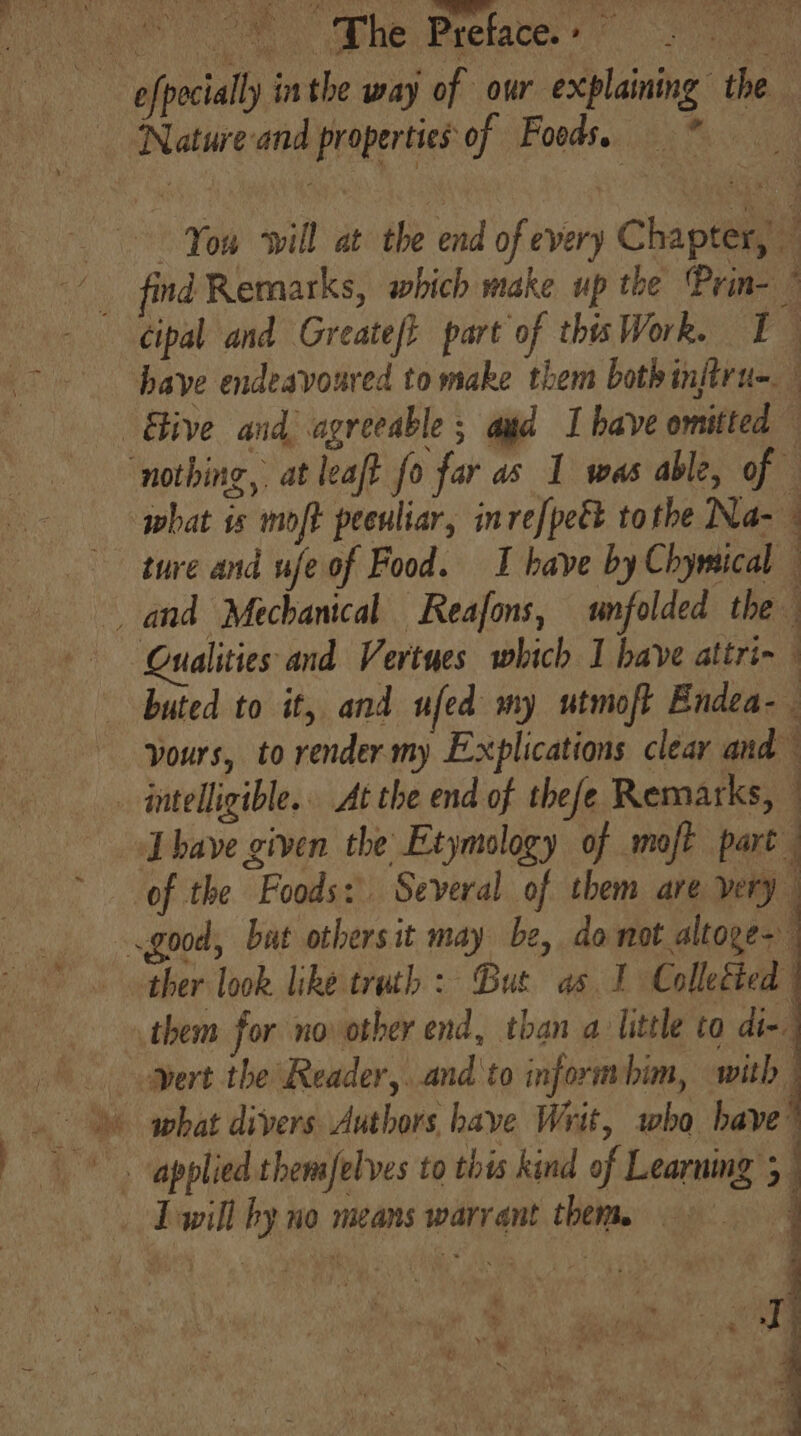 The Preface.
eſpecially in the way of our explaining the
Nature and properties of Foods.
You will at the end of every Chapter,
find Remarks, which make up the Prin-
cipal and Greateſt part of this Work. I
have endeavoured to make them both inſtru-
ctive and agreeable; and I have omitted
nothing, at leaſt ſo far as I was able, of
what is moſt peculiar, in reſpect to the Na-
ture and uſe of Food. I have by Chymical
and Mechanical Reaſons, unfolded the
Qualities and Vertues which I have attri-
buted to it, and uſed my utmoſt Endea-
vours, to render my Explications clear and
intelligible. At the end of theſe Remarks,
I have given the Etymology of moſt part
of the Foods: Several of them are very
good, but others it may be, do not altoge-
ther look like truth: But as I Collected
them for no other end, than a little to di-
vert the Reader, and to inform him, with
what divers Authors have Writ, who have
applied themſelves to this kind of Learning;
I will by no means warrant them.
I